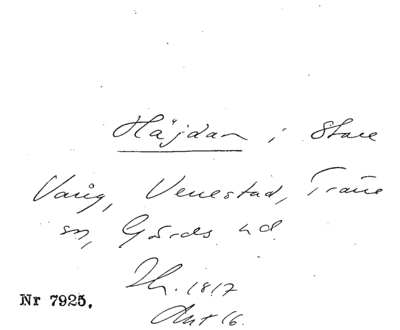 Häjdan i Stare
Vång, Venestad, Träne
sn, Gärds hd.
Th. 1817
Akt 16.
Nr 7925.